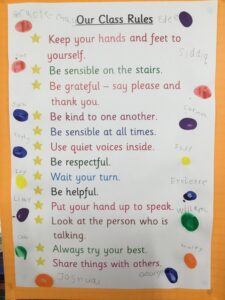 Our Class Rules
Keep your hands and feet to
yourself.
Be sensible on the stairs.
Be grateful – say please and
thank you.
Be kind to one another.
Be sensible at all times.
Use quiet voices inside.
Be respectful.
Wait your turn.
Be helpful.
Put your hand up to speak.
Look at the person who is
talking.
Always try your best.
Share things with others.
Joshua